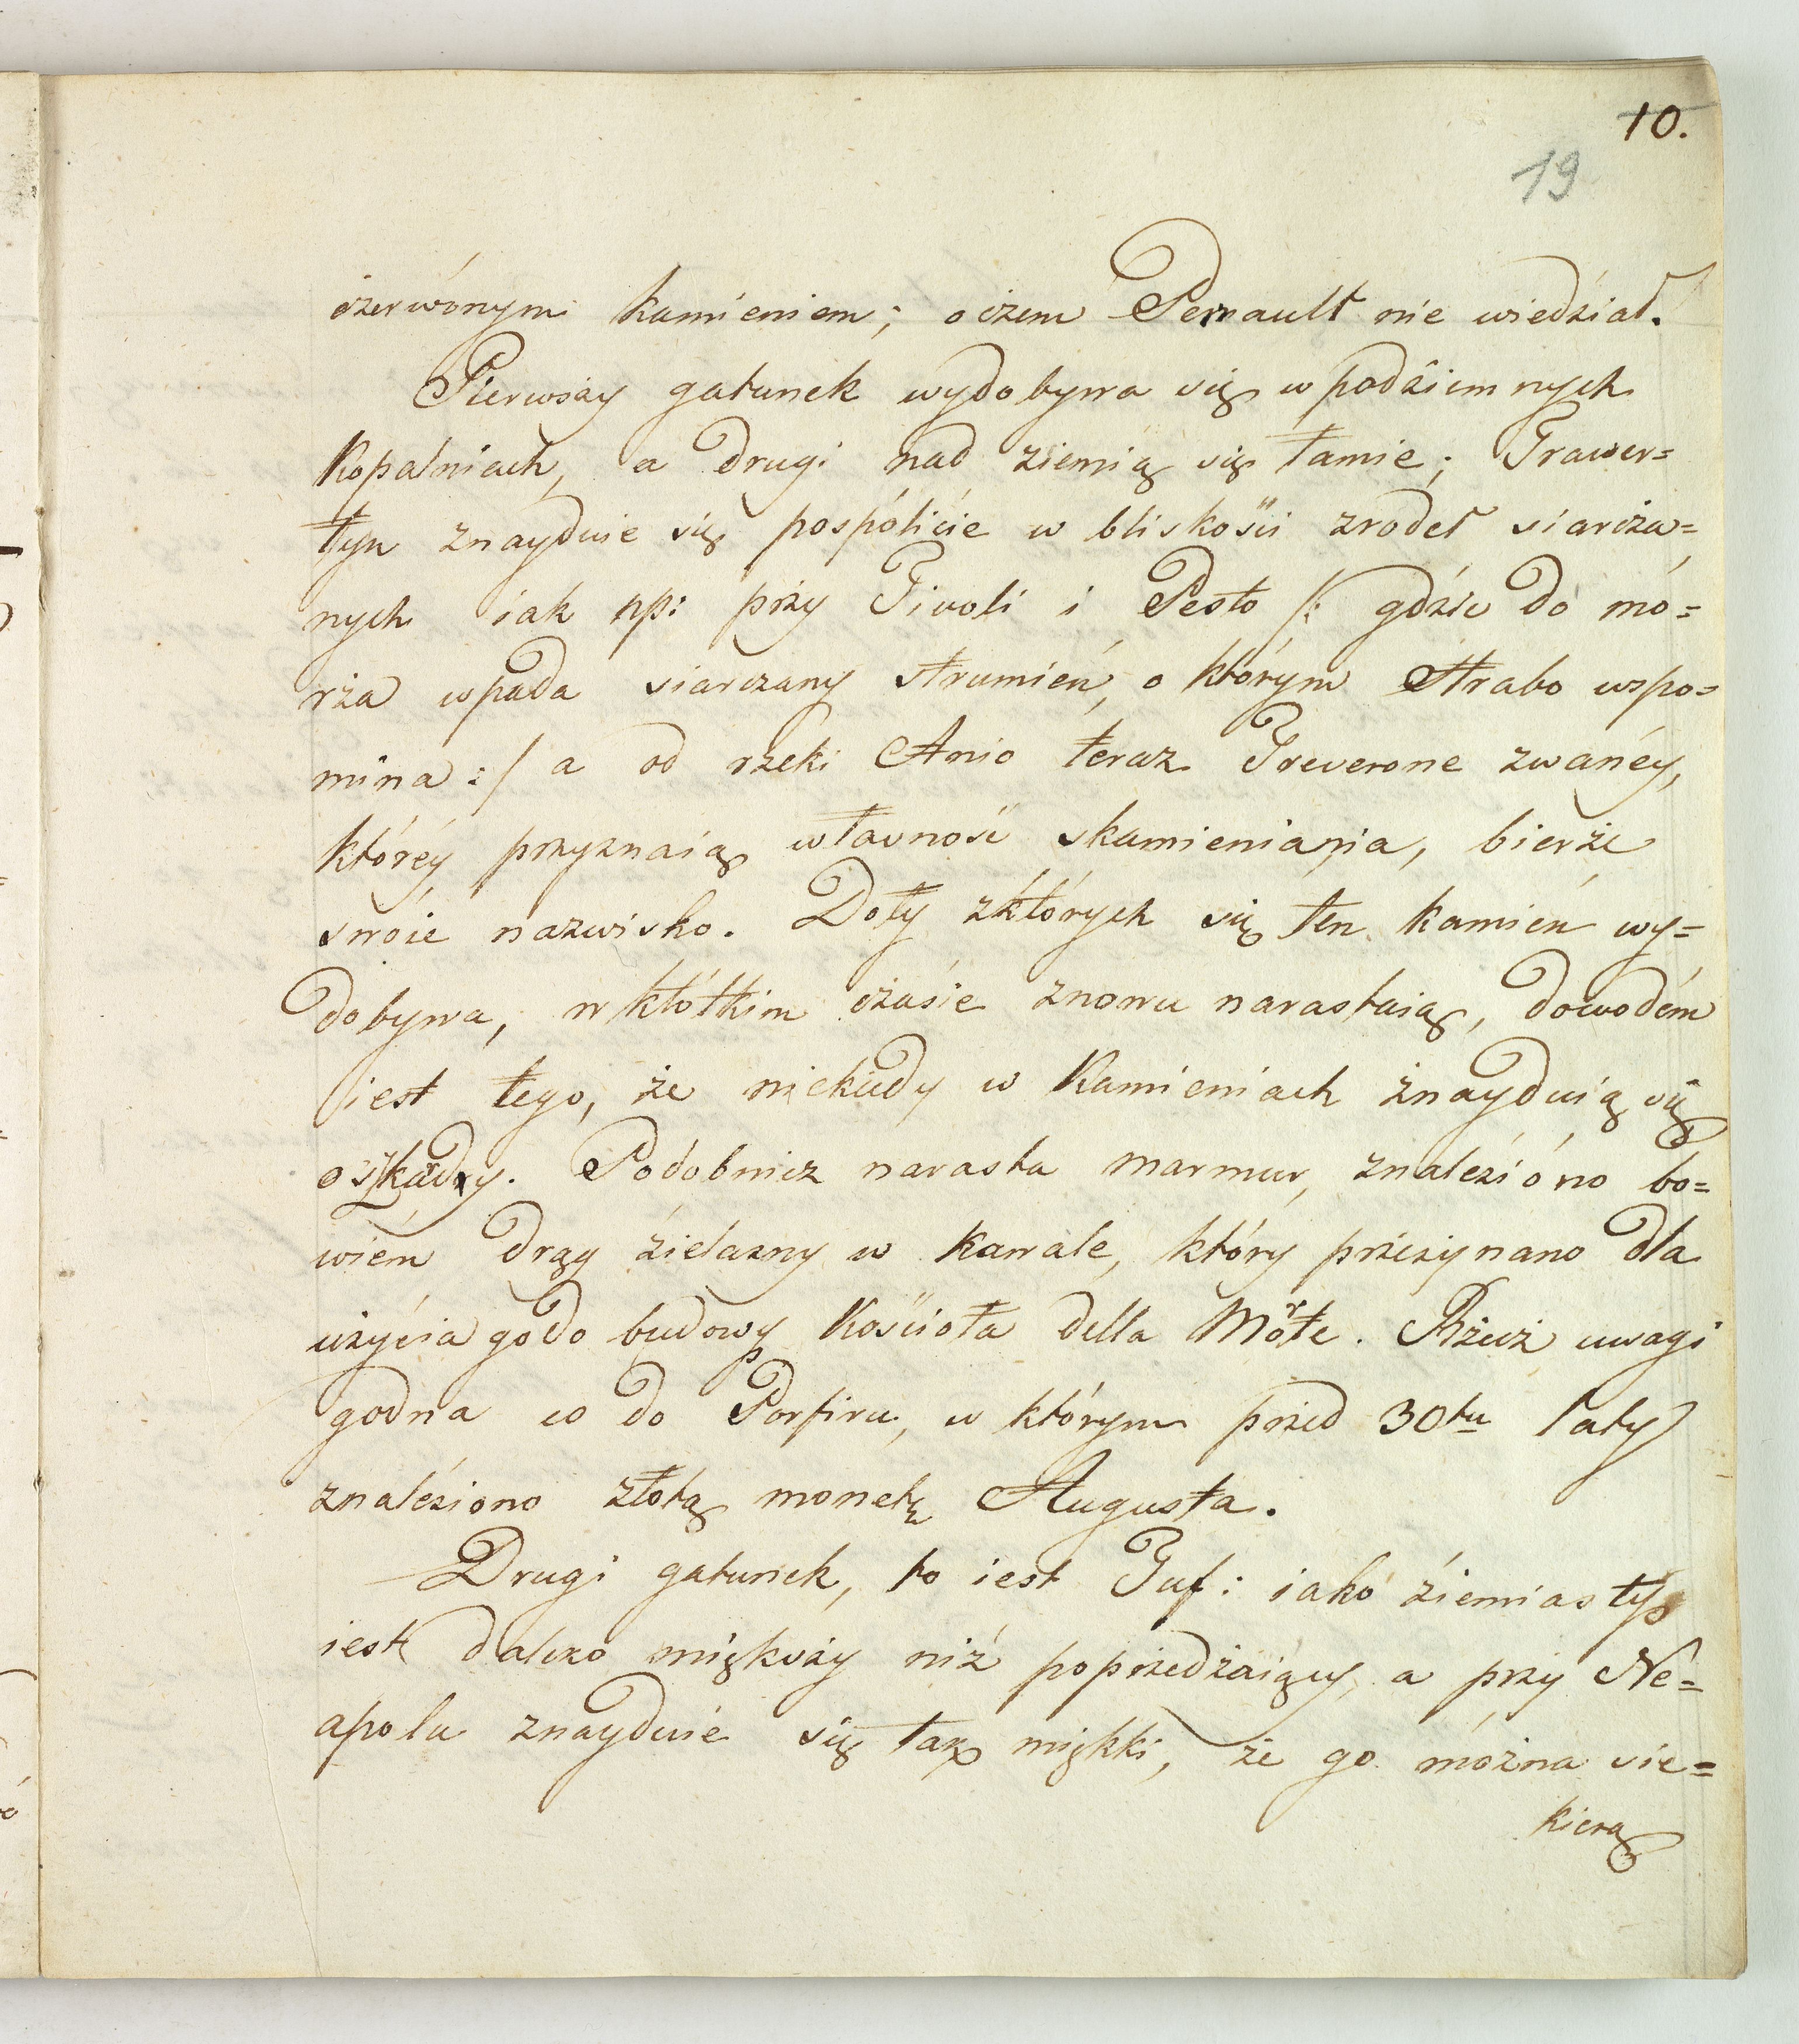 10.
19
czerwónym kamieniem; o czem Perrault nie wiedział.
Pierwszy gatunek wydobywa się w podziemnych
Kopalniach, a drugi nad ziemią się łamie; Trawer=
tyn znayduie się pospólicie w bliskości zrodeł siarcza=
nych iak np: przy Tivoli i Pesto /: gdzie do mo=
rza wpada siarczany strumień, o którym Strabo wspo=
mina :/ a od rzeki Anio teraz Treverone zwanéy,
któréy przyznaią własność skamieniania, bierze
swóie nazwisko. Doły z których się ten kamień wy=
dobywa, w któtkim czasie znowu narastaią, dowodém
iest tego, że niekiedy w Kamieniach znayduią się
oskardy. Podobniez narasta marmur, znalezióno bo=
wiém drąg żielazny w kawale, który przezynano dla
użycia go do budowy Kościoła della Morte. Rzecz uwagi
godna co do Porfiru, w którym przed 30tu laty
znaléziono złotą monetę Augusta.
Drugi gatunek, to iest Tuf: iako źiemiasty
iest daleko miększy niż poprzedzaiący, a przy Ne=
apolu znayduie się tak miękki, że go można sie=
kierą